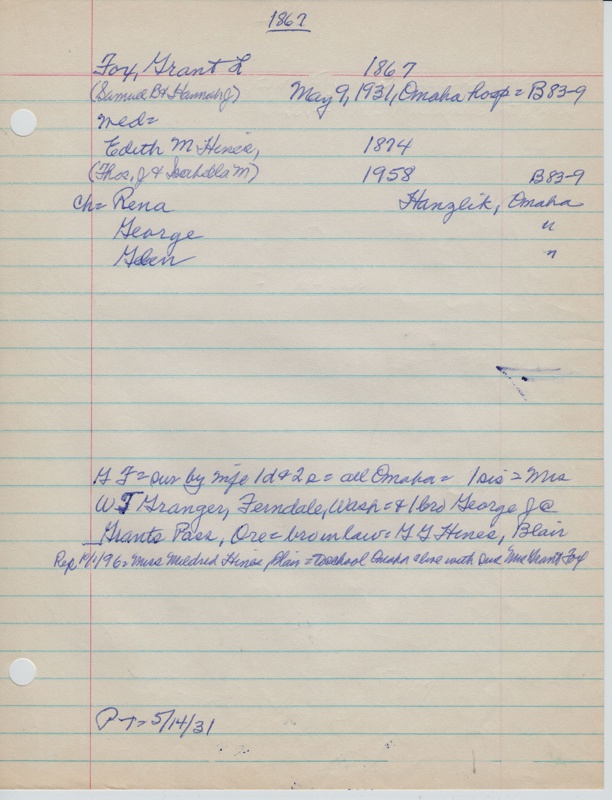 1867
Fox, Grant L 1867
(Samuel B & Hannah J) May 9, 1931, Omaha hosp = B83-9
med=
Edith M Hines, 1874
(Thos, J & M) 1958 B83-9
ch= Rena Hanzlik, Omaha
George "
Glen "
G F = sur by wife 1d & 2s = all Omaha = 1 sis = Mrs
W J Granger, Ferndale, Wash = & 1 bro George J @
Grants Pass, Ore = bro in law = G G Hines, Blair
Rep = Miss Mildred Hines, Blair = to school Omaha & live with Mrs Grant Fox
P-T= 5/14/31